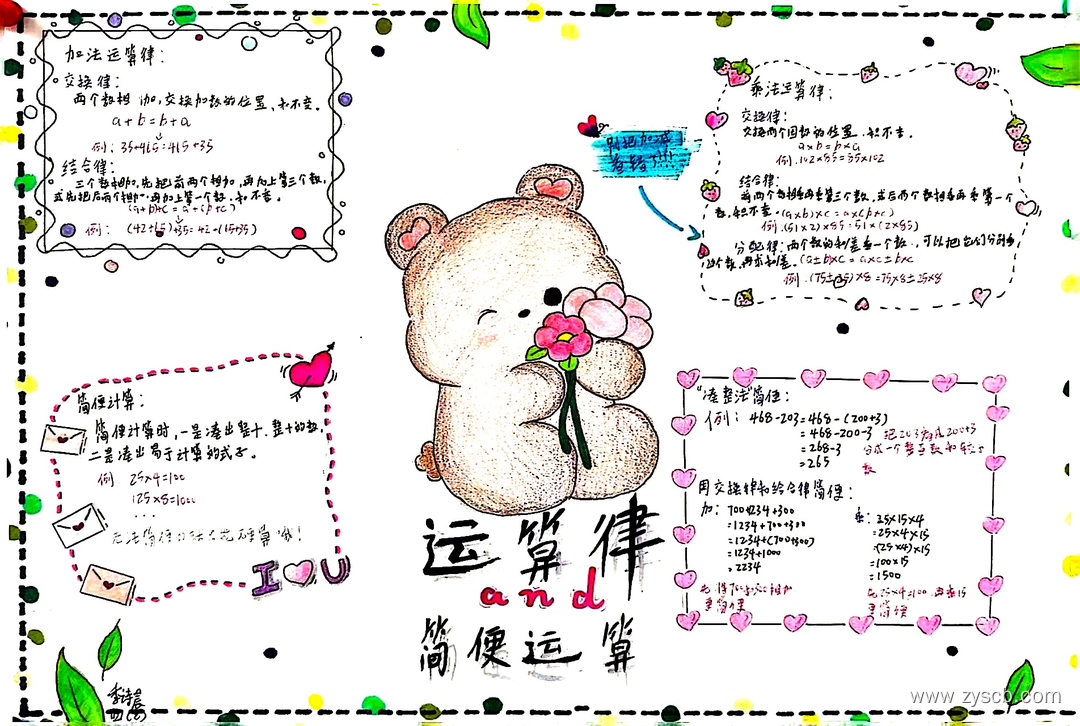 加法运算律：
交换律：
两个数相加，交换加数的位置、和不变。
a+b=b+a
例：35+465=465+35
结合律：
三个数相加，先把前两个相加，再加上第三个数，
或先把后两个相加，再加上第一个数，和不变。
(a+b)+c=a+(b+c)
例：(42+65)+35=42+(65+35)
别把加减
卷错了!!!
乘法运算律：
交换律：
交换两个因数的位置，积不变。
a×b=b×a
例.102×55=55×102
结合律：
前两个数相乘再乘第三个数，或后两个数相乘再乘第一个
数，积不变。(a×b)×c=a×(b×c)
例.(51×2)×55=51×(2×55)
分配律：两个数的和(差)乘一个数，可以把它们分别乘
这个数，再求和(差)。(a±b)×c=a×c±b×c
例.(75±25)×8=75×8±25×8
简便计算：
简便计算时，一是凑出整十、整百的数，
二是凑出易于计算的式子。
例 25×4=100
125×8=1000
...
无法简便的
硬算哦！
I U
运算律
and
简便运算
"凑整法"简便：
例：468-203=468-(200+3)
=468-200-3 把203看成200+3
=268-3 分成一个整百数和较小
=265 数
用交换律和结合律简便：
加：700+1234+300
=1234+700+300
=1234+(700+300)
=1234+1000
=2234
乘：25×15×4
=25×4×15
=(25×4)×15
=100×15
=1500
更简便
先25×4=100，再乘15
更简便
李诗晨
www.zyscb.com